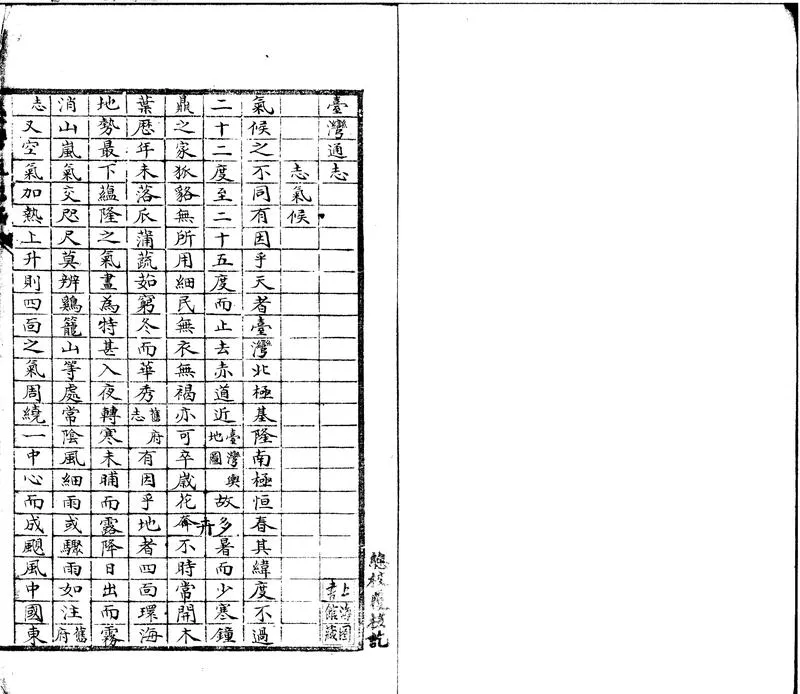 臺灣通志
志氣候
氣候之不同有因乎天者臺灣北極基隆南極恒春其緯度不過
二十二度至二十五度而止去赤道近臺灣輿地圖故多暑而少寒鐘
鼎之家狐貉無所用細民無衣無褐亦可卒歲花卉不時常開木
葉歷年未落瓜蒲蔬茹窮冬而華秀舊府志有因乎地者四面環海
地勢最下蘊隆之氣晝為特甚入夜轉寒未晡而露降日出而霧
消山嵐氣交咫尺莫辨鷄籠山等處常陰風細雨或驟雨如注舊府
志又空氣加熱上升則四面之氣周繞一中心而成颶風中國東
總校覆校訖
上海圖書館藏